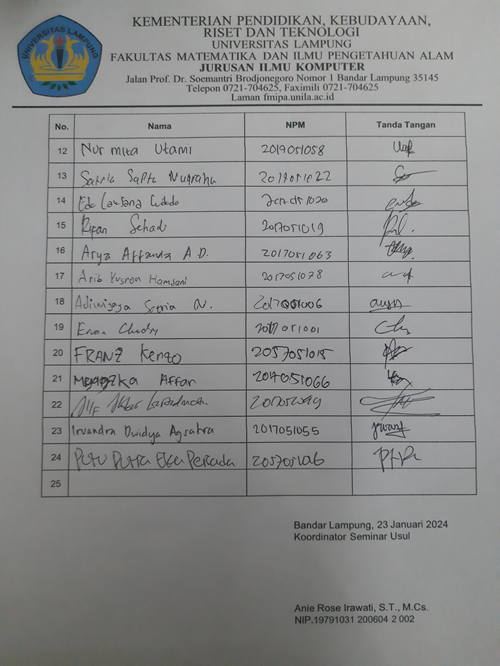 UNIVERSITAS LAMPUNG
KEMENTERIAN PENDIDIKAN, KEBUDAYAAN,
RISET DAN TEKNOLOGI
UNIVERSITAS LAMPUNG
FAKULTAS MATEMATIKA DAN ILMU PENGETAHUAN ALAM
JURUSAN ILMU KOMPUTER
Jalan Prof. Dr. Soemantri Brodjonegoro Nomor 1 Bandar Lampung 35145
Telepon 0721-704625, Faximili 0721-704625
Laman fmipa.unila.ac.id
No. Nama NPM Tanda Tangan
12 Nur mita Utami 2017051058
13 Satria Sapta Nugraha
14
15 Rifan Setiadi 2017051019
16 Arya Affanda A D. 2017051063
17 Arib Yusron Hamdani 2017051078
18 Adiwijaya Satria N. 2017051006
19 2017051001
20 FRANZ Kenzo
21 Affan 2017051066
22
23 Irvandra Dwidya 2017051055
24 PUTU PUTRA EKA PERSADA
25
Bandar Lampung, 23 Januari 2024
Koordinator Seminar Usul
Anie Rose Irawati, S.T., M.Cs.
NIP.19791031 200604 2 002